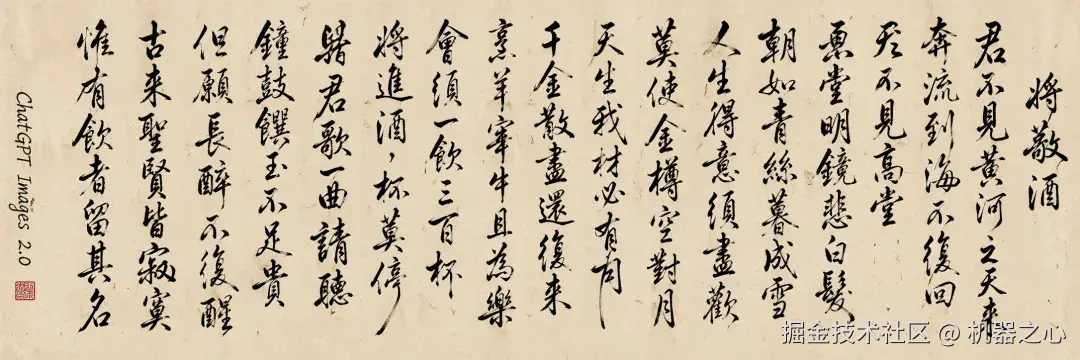 将敬酒
君不見黄河之天来
奔流到海不復回
君不見高堂
悬堂明鏡悲白髮
朝如青絲暮成雪
人生得意須盡歡
莫使金樽空對月
天生我材必有用
千金散盡還復来
烹羊宰牛且為樂
會須一飲三百杯
将進酒，杯莫停
君歌一曲請聽
鐘鼓饌玉不足貴
但願長醉不復醒
古来聖賢皆寂寞
惟有飲者留其名
ChatGPT Images 2.0
掘金技术社区 @ 机器之心